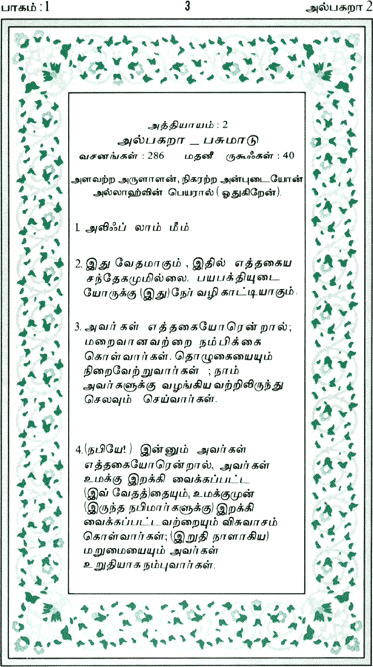 பாகம் : 1 3 அல்பகறா 2
அத்தியாயம் : 2
அல்பகறா _ பசுமாடு
வசனங்கள் : 286 மதனீ ருகூஃகள் : 40
அளவற்ற அருளாளன், நிகரற்ற அன்புடையோன்
அல்லாஹ்வின் பெயரால் ( ஓதுகிறேன்).
1. அலிஃப் லாம் மீம்
2. இது வேதமாகும் , இதில் எத்தகைய
சந்தேகமுமில்லை. பயபக்தியுடை
யோருக்கு (இது) நேர் வழி காட்டியாகும்.
3. அவர்கள் எத்தகையோரென்றால்;
மறைவானவற்றை நம்பிக்கை
கொள்வார்கள். தொழுகையையும்
நிறைவேற்றுவார்கள் ; நாம்
அவர்களுக்கு வழங்கியவற்றிலிருந்து
செலவும் செய்வார்கள்.
4. (நபியே! ) இன்னும் அவர்கள்
எத்தகையோரென்றால், அவர்கள்
உமக்கு இறக்கி வைக்கப்பட்ட
(இவ் வேதத்)தையும், உமக்குமுன்
(இருந்த நபிமார்களுக்கு) இறக்கி
வைக்கப்பட்டவற்றையும் விசுவாசம்
கொள்வார்கள்; (இறுதி நாளாகிய)
மறுமையையும் அவர்கள்
உறுதியாக நம்புவார்கள்.